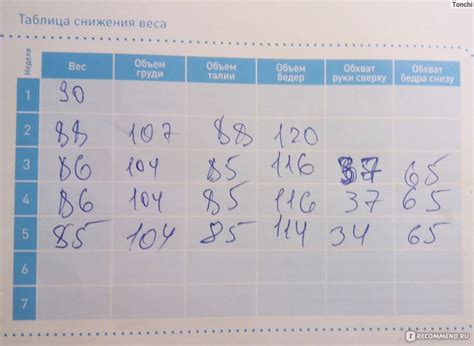 Tonchi
Таблица снижения веса
Неделя Вес Объем груди Объем талии Объем бедер Обхват руки сверху Обхват бедра снизу
1 90
2 88 107 88 120
3 86 104 85 116 37 65
4 86 104 85 116 37 65
5 85 104 85 114 34 65
6
7
IRECOMMEND.RU